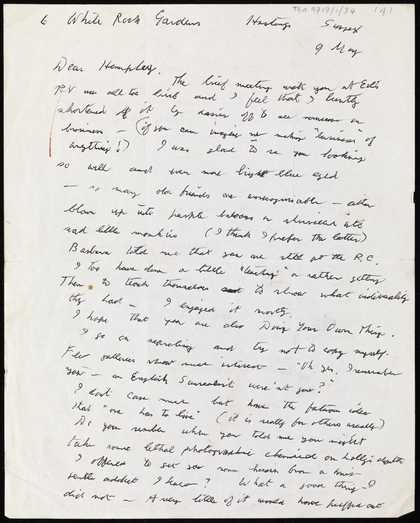 6 White Rock Gardens Hastings Sussex
9 May
Dear Humphrey.
The brief meeting with you at Ed's
P.V was all too brief and I feel that I
shortened it by having to see someone on
business – (if you can imagine me making "business" of
anything!) I was glad to see you looking
so well and even more bright blue eyed
– so many old friends are unrecognisable – either
blown up into purple balloons or shrivelled into
sad little monkeys (I think I prefer the latter)
Barbara told me that you are still at the R.C.
I too have done a little "teaching" or rather getting
Them to teach themselves to show what individuality
they had – I enjoyed it mostly.
I hope that you are also Doing Your Own Thing.
I go on repeating and try not to copy myself.
Few galleries show much interest – "Oh yes, I remember
you – an English Surrealist weren't you?"
I don't care much but have the fatuous idea
that "one has to live" (it is really for others usually)
Do you remember when you told me you might
take some lethal photographic chemical on Holly's death
I offered to get you some heroin from a
addict I knew? What a good thing I
did not – A very little of it would have